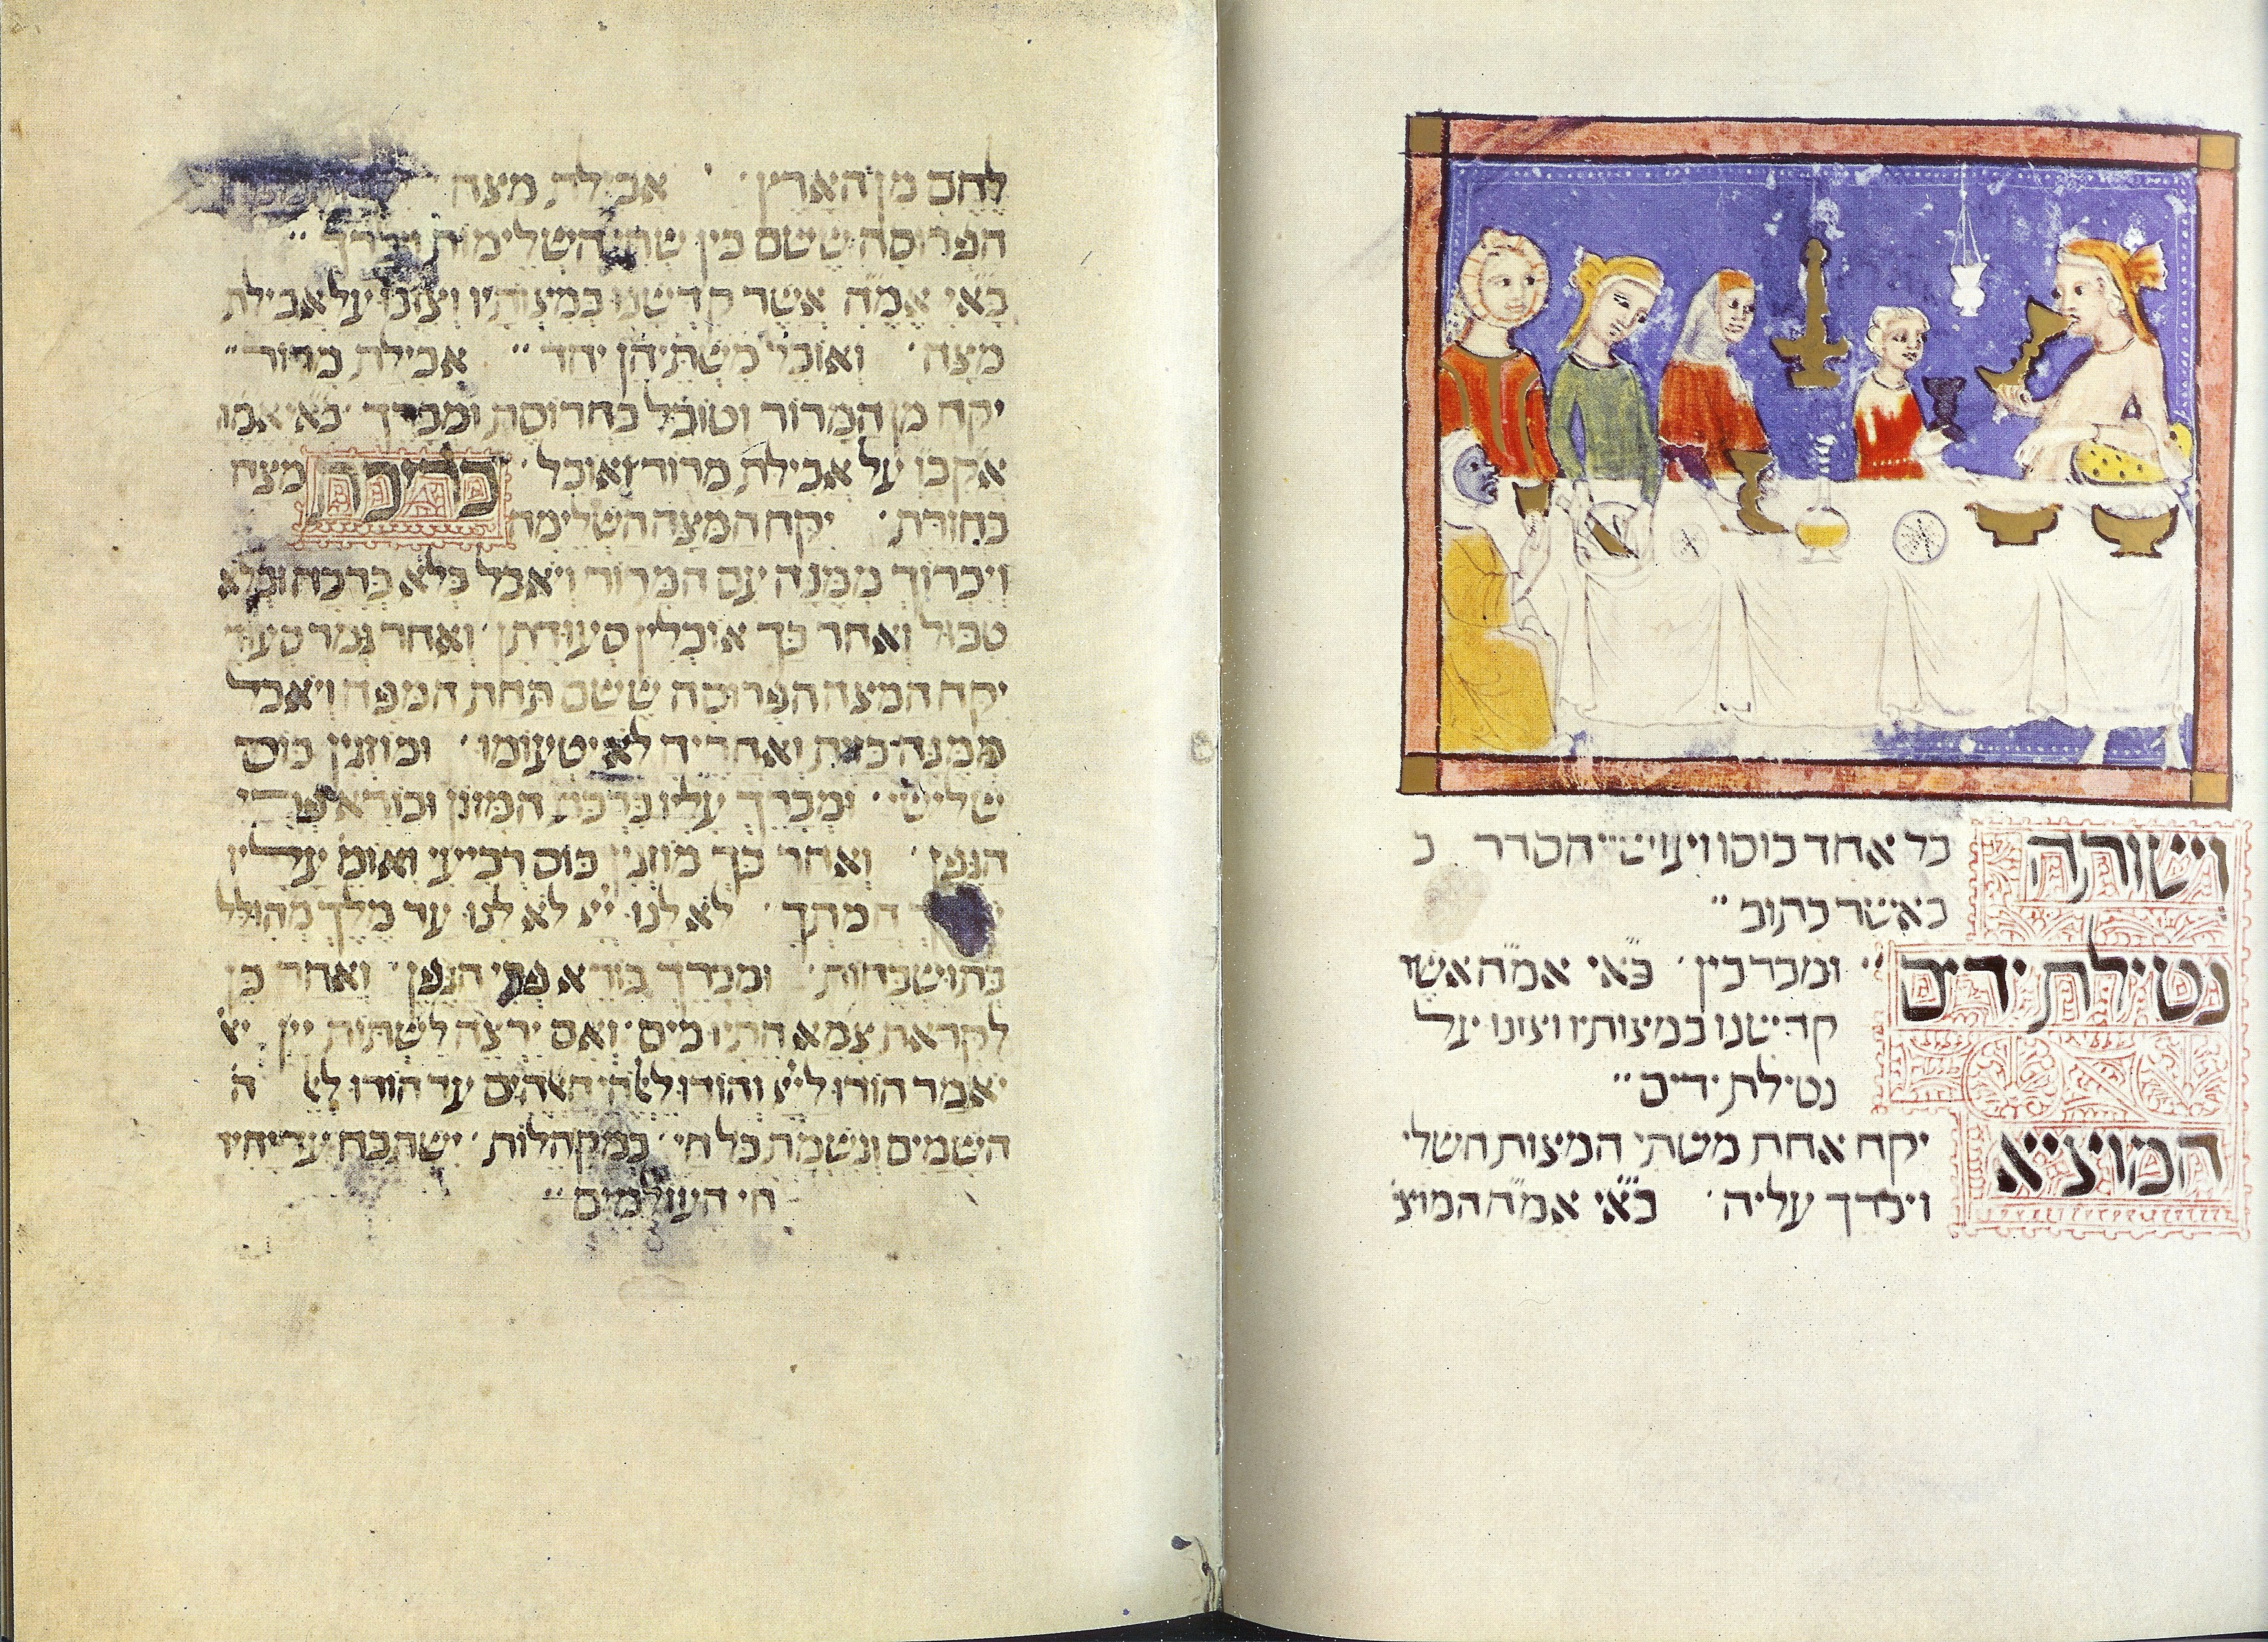 וישותה כל אחד כוסו ויעש הסדר כ
כאשר כתוב
נטילת ידים ומברכין בא״י אמ״ה אשר
קדישנו במצותיו וצונו על
נטילת ידים
המוציא יקח אחת משתי המצות השלי
ויברך עליה בא״י אמ״ה המוצ
לֶחֶם מן הָאָרֶץ אכילת מצה
הפרוסה ששם בין שתי השלימות ויברך
בא״י אמ״ה אשר קדשנו במצותיו וצונו על אכילת
מצה ואוכל משתיהן יחד אכילת מרור
יקח מן המרור וטובל בחרוסת ומברך בא״י אמ״ה
אקבו על אכילת מרור ואוכל כריכה מצה
בחזרת יקח המצה השלימה
ויכרוך ממנה עם המרור ויאכל בלא ברכה ובלא
טבול ואחר כך אוכלין סעודתן ואחר גמר סעוד
יקח המצה הפרוסה ששם תחת המפה ויאכל
ממנה כזית ואחריה לא יטעומו ומוזגין כוס
שלישי ומברך עליו ברכת המזון ובורא פרי
הגפן ואחר כך מוזגין כוס רביעי ואומ׳ עליו
חמתך לא לנו ייי לא לנו עד מלך מהולל
בתושבחות ומברך בורא פרי הגפן ואחר כן
לקראת צמא התיו מים ואם ירצה לשתות יין
יאמר הודו לייי והודו לאלהי האלהים עד הודו לא ה
השמים ונשמת כל חי במקהלות ישתבח עד יחיד
חי העולמים